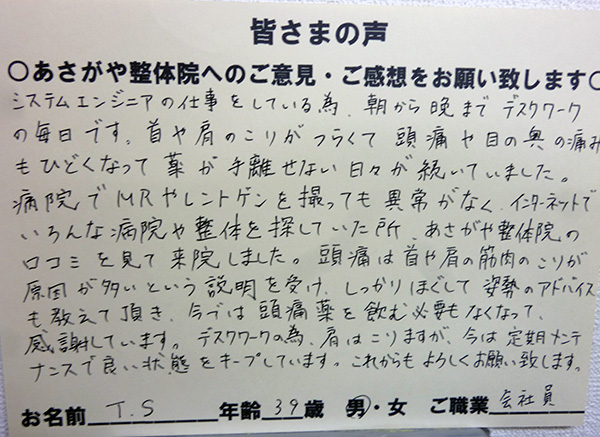 皆さまの声
○あさがや整体院へのご意見・ご感想をお願い致します○
システムエンジニアの仕事をしている為、朝から晩までデスクワーク
の毎日です。首や肩のこりがつらくて頭痛や目の奥の痛み
もひどくなって薬が手離せない日々が続いていました。
病院でMRやレントゲンを撮っても異常がなく、インターネットで
いろんな病院や整体を探していた所、あさがや整体院の
口コミを見て来院しました。頭痛は首や肩の筋肉のこりが
原因が多いという説明を受け、しっかりほぐして姿勢のアドバイス
も教えて頂き、今では頭痛薬を飲む必要もなくなって、
感謝しています。デスクワークの為、肩はこりますが、今は定期メンテ
ナンスで良い状態をキープしています。これからもよろしくお願い致します。
お名前 T.S 年齢 39 歳 男・女 ご職業 会社員